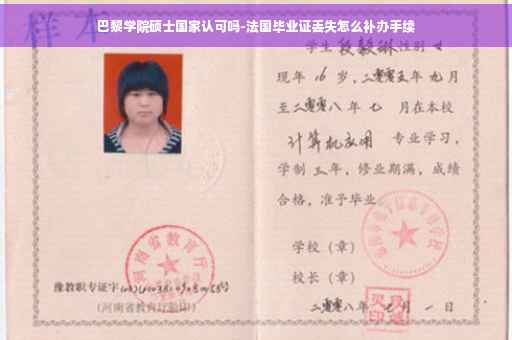 巴黎学院硕士国家认可吗-法国毕业证丢失怎么补办手续
样本
学生段毅琳性别女
现年16岁,二零零五年九月
至二零零八年七月在本校
计算机应用 专业学习,
学制三年,修业期满,成绩
合格,准予毕业
学校(章)
校长(章)
二零零八年 月一日
河南省教育厅
豫教职专证字
(河南省教育厅验印)